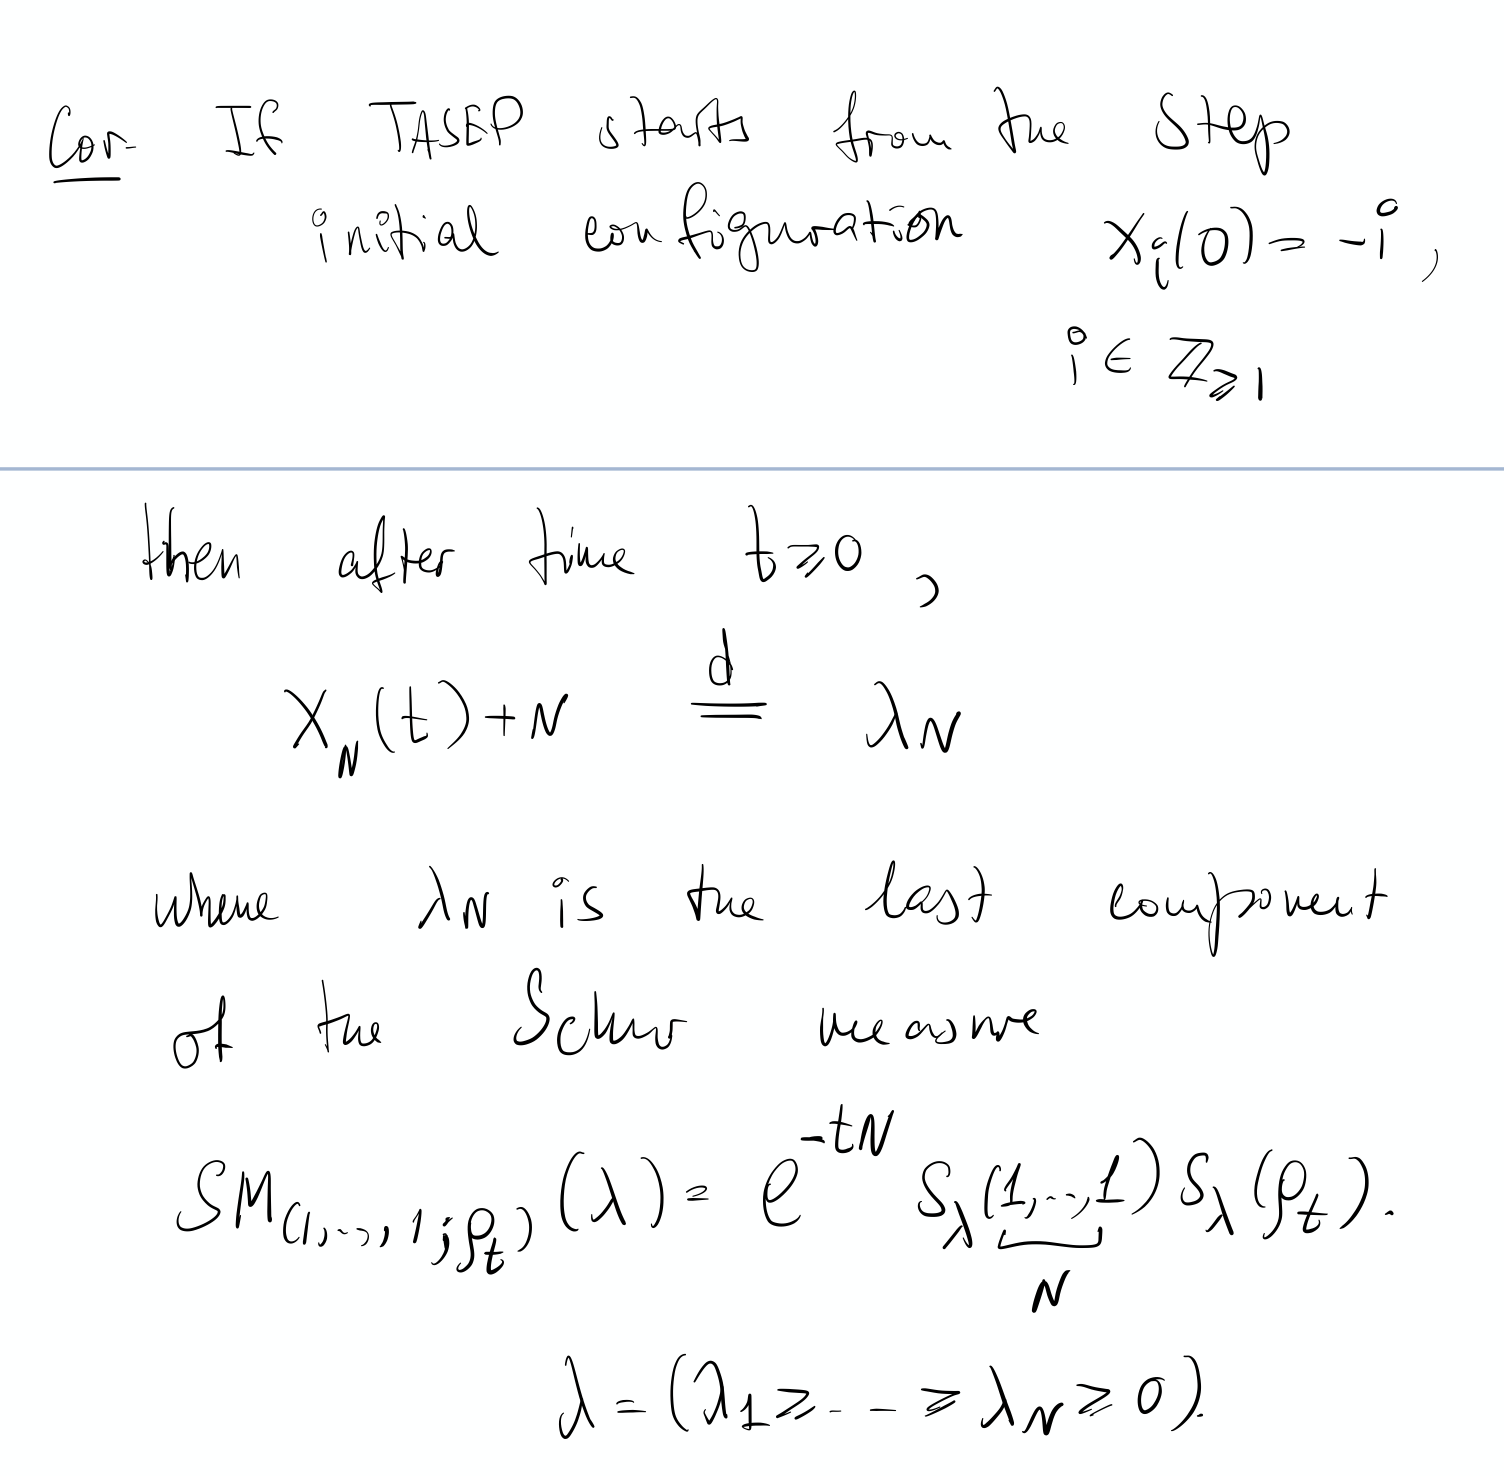 Cor. If TASEP starts from the step
initial configuration x_i(0) = -i,
i ∈ ℤ_{≥1}
then after time t ≥ 0,
x_N(t) + N \stackrel{d}{=} λ_N
where λ_N is the last component
of the Schur measure
SM_{(1,..,1; ρ_t)}(λ) = e^{-tN} s_λ(\underbrace{1,..,1}_{N}) s_λ(ρ_t).
λ = (λ_1 ≥ - - ≥ λ_N ≥ 0).